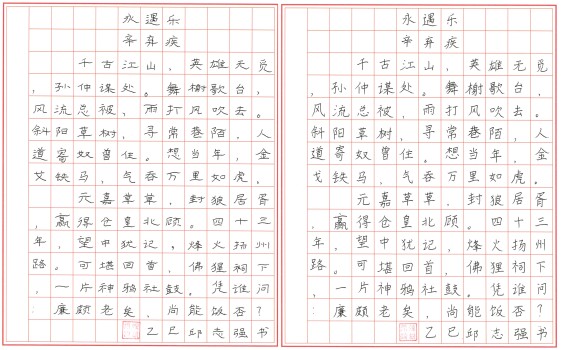 永遇乐
辛弃疾
千古江山，英雄无觅
，孙仲谋处。舞榭歌台，
风流总被，雨打风吹去。
斜阳草树，寻常巷陌，人
道寄奴曾住。想当年，金
戈铁马，气吞万里如虎。
元嘉草草，封狼居胥
，赢得仓皇北顾。四十三
年，望中犹记，烽火扬州
路。可堪回首，佛狸祠下
，一片神鸦社鼓。凭谁问
：廉颇老矣，尚能饭否？
乙巳邱志强书
永遇乐
辛弃疾
千古江山，英雄无觅
，孙仲谋处。舞榭歌台，
风流总被，雨打风吹去。
斜阳草树，寻常巷陌，人
道寄奴曾住。想当年，金
戈铁马，气吞万里如虎。
元嘉草草，封狼居胥
，赢得仓皇北顾。四十三
年，望中犹记，烽火扬州
路。可堪回首，佛狸祠下
，一片神鸦社鼓。凭谁问
：廉颇老矣，尚能饭否？
乙巳邱志强书